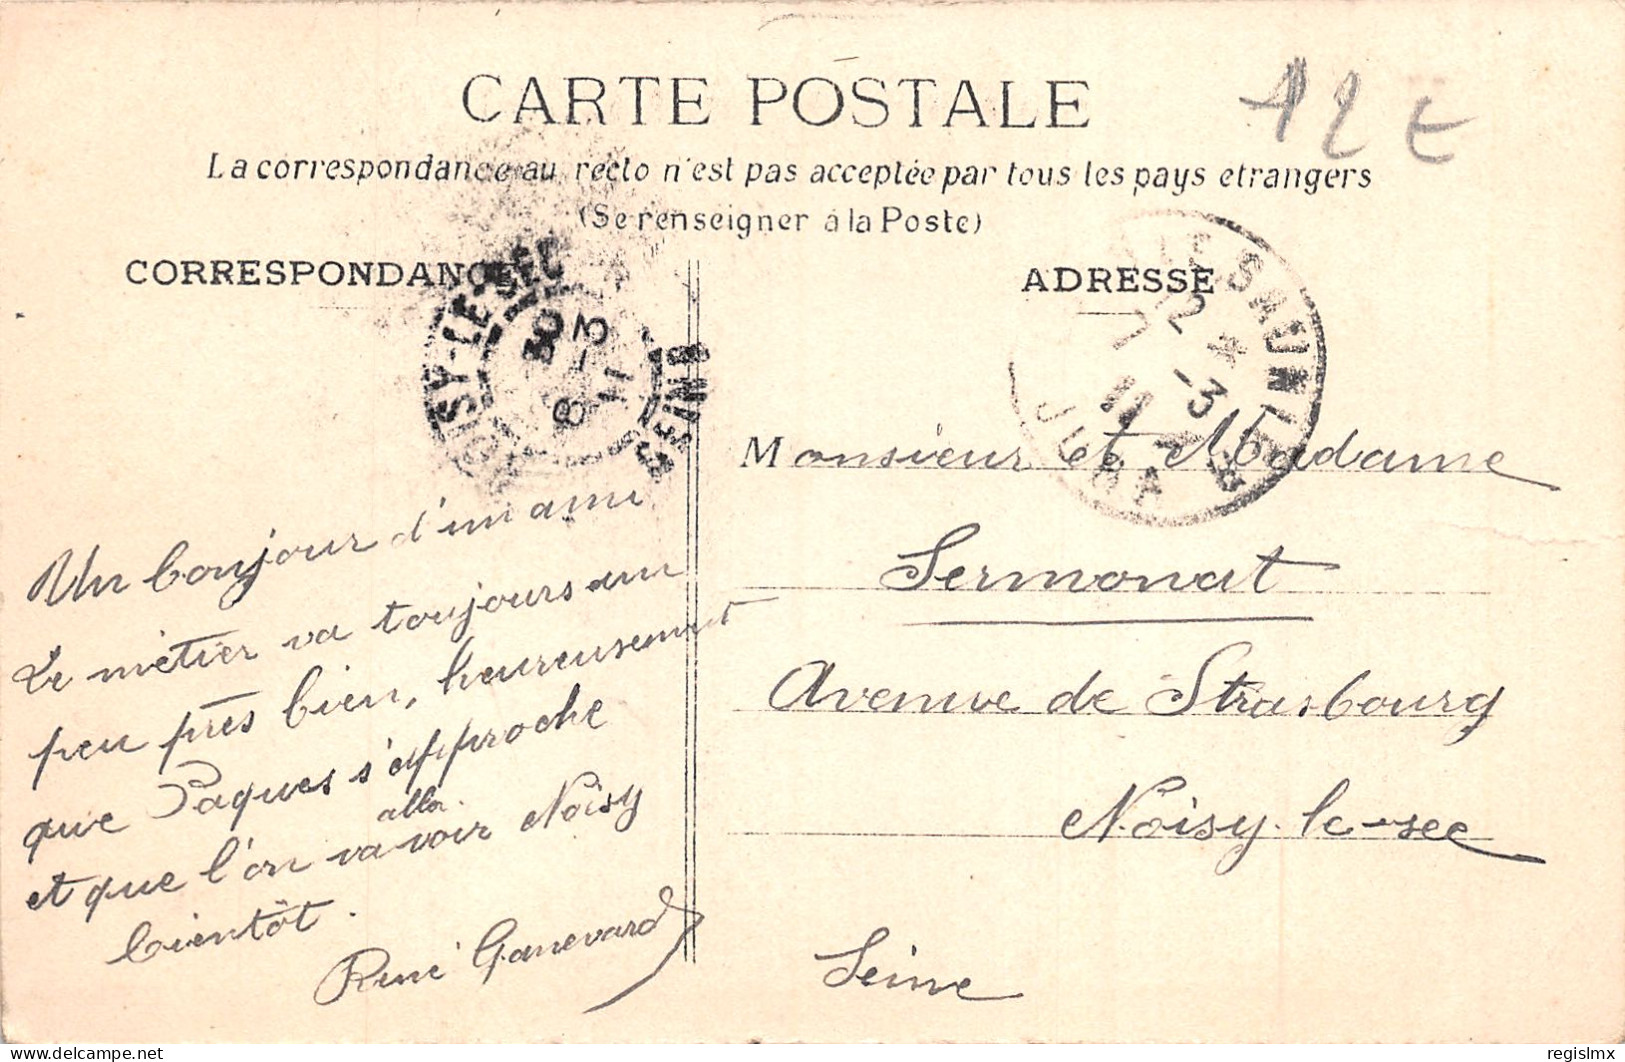 CARTE POSTALE
12 E
La correspondance au recto n'est pas acceptée par tous les pays etrangers
(Se renseigner à la Poste)
CORRESPONDANCE
ADRESSE
NOISY-LE-SEC
SEINE
8 -3
11
SAUNIER
JURA
12
7 -3
11
Un bonjour d'un ami
Le métier va toujours un
peu près bien, heureusement
que Paques s'approche
et que l'on va alla voir Noisy
bientôt.
René Ganevard
Monsieur et Madame
Sermonat
Avenue de Strasbourg
Noisy-le-sec
Seine
delcampe.net
regislmx